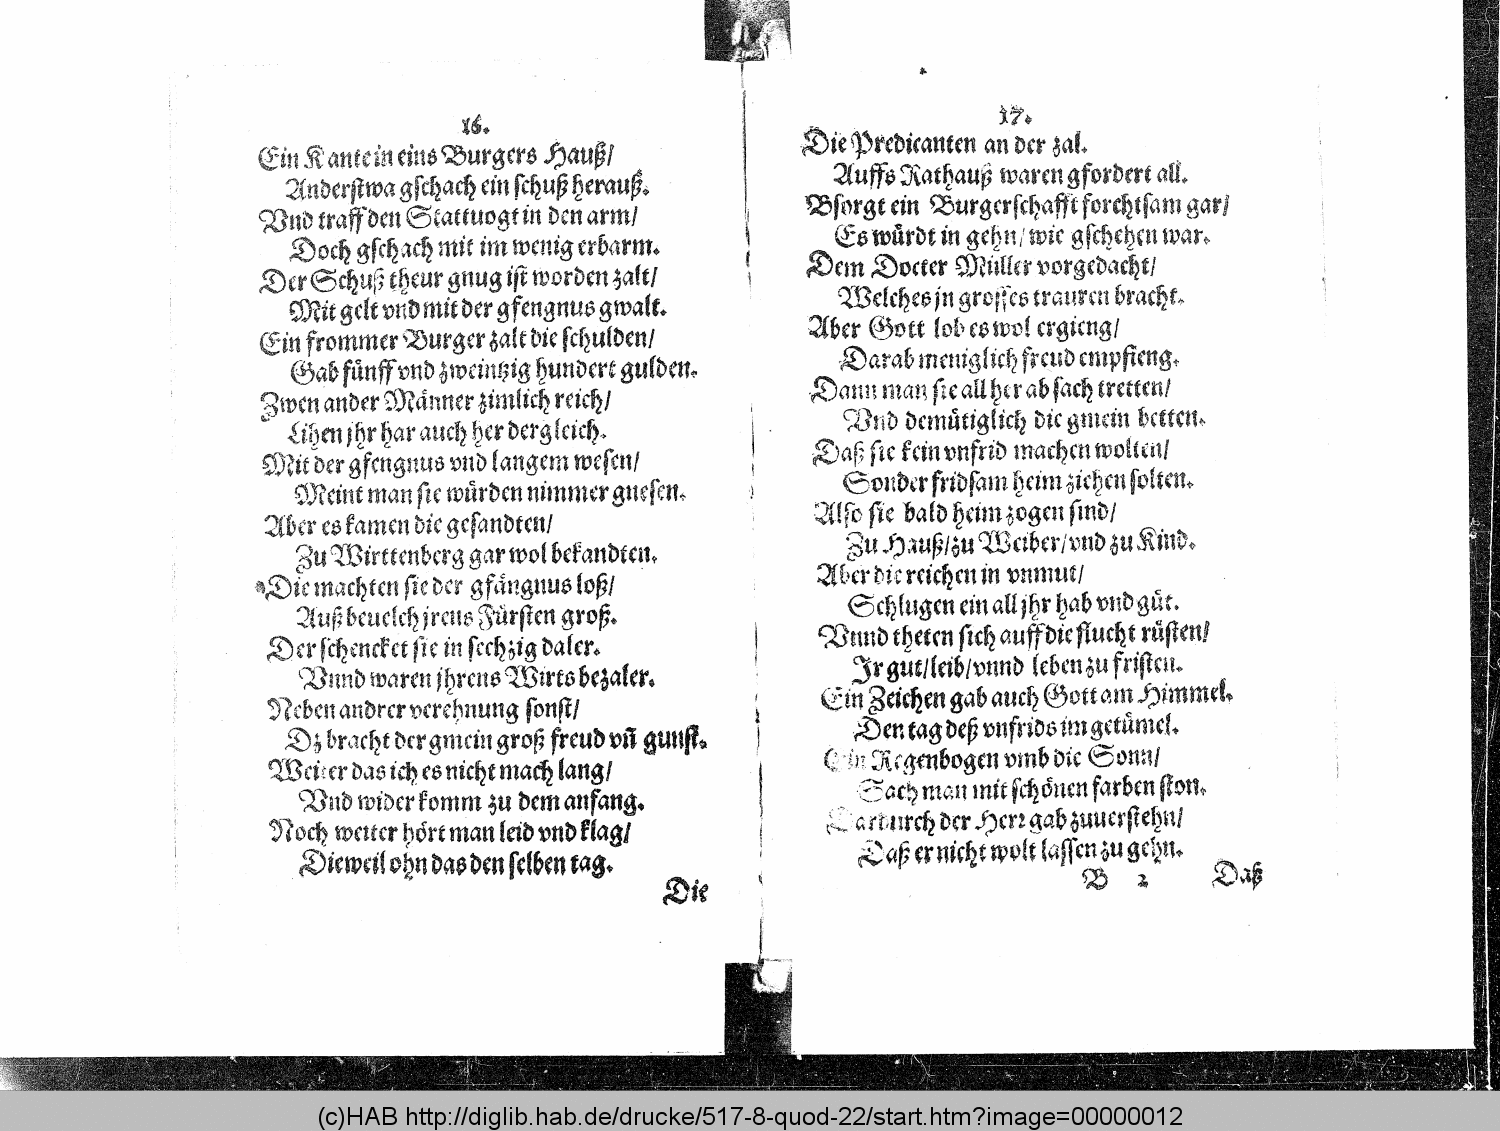 16.
Ein Kante in eins Burgers Hauß/
Anderstwa gschach ein schuß herauß.
Vnd traff den Stattuogt in den arm/
Doch gschach mit im wenig erbarm.
Der Schuß theur gnug ist worden zalt/
Mit gelt vnd mit der gfengnus gwalt.
Ein frommer Burger zalt die schulden/
Gab fünff vnd zweintzig hundert gulden.
Zwen ander Männer zimlich reich/
Lihen jhr har auch her dergleich.
Mit der gfengnus vnd langem wesen/
Meint man sie würden nimmer gnesen.
Aber es kamen die gesandten/
Zu Wirttenberg gar wol bekandten.
Die machten sie der gfängnus loß/
Auß beuelch jrens Fürsten groß.
Der schencket sie in sechzig daler.
Vnnd waren jhrens Wirts bezaler.
Neben andrer verehnung sonst/
Dz bracht der gmein groß freud vñ gunst.
Weiter das ich es nicht mach lang/
Vnd wider komm zu dem anfang.
Noch weiter hört man leid vnd klag/
Dieweil ohn das den selben tag.
Die
17.
Die Predicanten an der zal.
Auffs Rathauß waren gfordert all.
Bsorgt ein Burgerschafft forchtsam gar/
Es würdt in gehn/ wie gschehen war.
Dem Docter Müller vorgedacht/
Welches jn grosses trauren bracht.
Aber Gott lob es wol ergieng/
Darab meniglich freud empfieng.
Dann man sie all her ab sach tretten/
Vnd demütiglich die gmein betten.
Daß sie kein vnfrid machen wolten/
Sonder fridsam heim ziehen solten.
Also sie bald heim zogen sind/
Zu Hauß/ zu Weiber/ vnd zu Kind.
Aber die reichen in vnmut/
Schlugen ein all jhr hab vnd güt.
Vnnd theten sich auff die flucht rüsten/
Jr gut/ leib/ vnnd leben zu fristen.
Ein Zeichen gab auch Gott am Himmel.
Den tag deß vnfrids im getümel.
Ein Regenbogen vmb die Sonn/
Sach man mit schönen farben ston.
Dardurch der Herr gab zuuerstehn/
Daß er nicht wolt lassen zu gehn.
B 2 Daß
(c)HAB http://diglib.hab.de/drucke/517-8-quod-22/start.htm?image=00000012